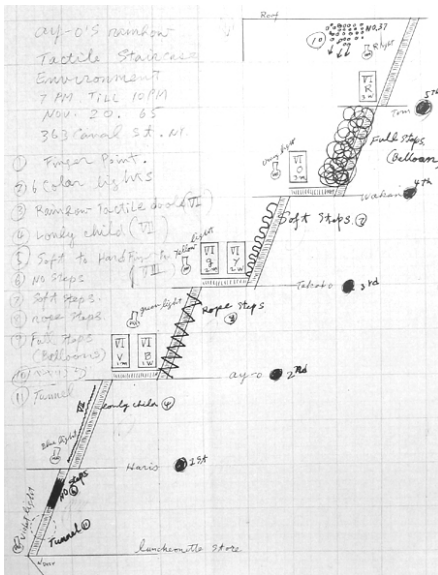 ay-o's rainbow
Tactile Staircase
Environment
7 PM Till 10PM
Nov. 20. 65
363 Canal St. NY.
① Finger Point.
② 6 Color lights
③ Rainbow Tactile (VI)
④ Lonely child (VI)
⑤ Soft to Hard
(VI)
⑥ No Steps
⑦ Soft Steps
⑧ Rope Steps
⑨ Full Steps
(Balloons)
⑩
⑪ Tunnel
Roof
⑩ No. 37
R light
VI
R
5th
Tom
Full Steps
(Balloon)
light
VI
O
4th
Wakari
Soft Steps ⑦
Yellow light
VI
g
VI
y
Takako
3rd
Rope Steps
green light
VI
V
VI
B
ay-o
2nd
Lonely child ④
Blue light
Haris
1st
No Steps
Violet light
Tunnel
luncheonette Store